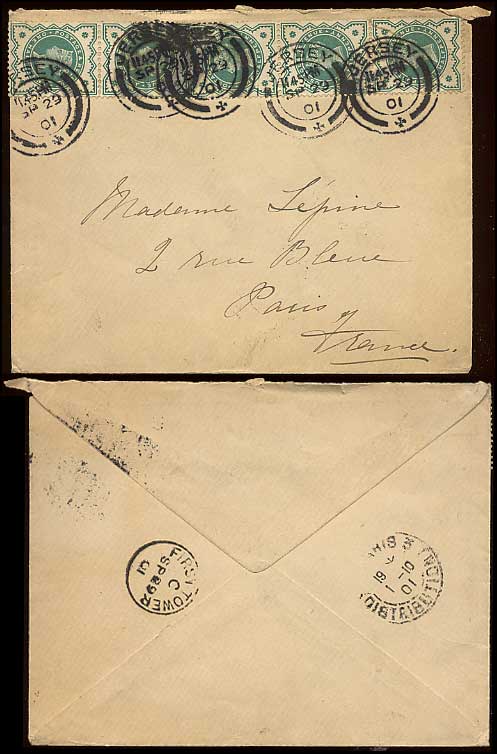 JERSEY
11.45 AM
SP 29
01
JERSEY
SP 29
01
JERSEY
11.45 AM
SP 29
01
JERSEY
11.45 AM
SP 29
01
Madame Lépine
2 rue Bleue
Paris
France.
FIRST TOWER
C
SP 29
01
PARIS
1-10
01
DISTRIBUTION